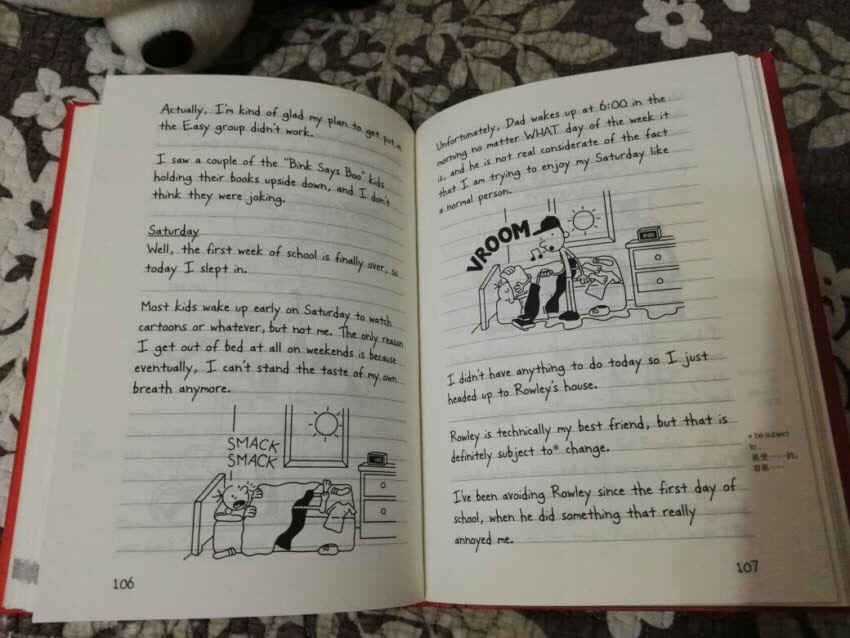 Actually, I'm kind of glad my plan to get put in
the Easy group didn't work.
I saw a couple of the "Bink Says Boo" kids
holding their books upside down, and I don't
think they were joking.
Saturday
Well, the first week of school is finally over, so
today I slept in.
Most kids wake up early on Saturday to watch
cartoons or whatever, but not me. The only reason
I get out of bed at all on weekends is because
eventually, I can't stand the taste of my own
breath anymore.
SMACK
SMACK
106
Unfortunately, Dad wakes up at 6:00 in the
morning no matter WHAT day of the week it
is, and he is not real considerate of the fact
that I am trying to enjoy my Saturday like
a normal person.
VROOM
I didn't have anything to do today so I just
headed up to Rowley's house.
Rowley is technically my best friend, but that is
definitely subject to* change.
* be subject
to...
易受……的,
容易……
I've been avoiding Rowley since the first day of
school, when he did something that really
annoyed me.
107